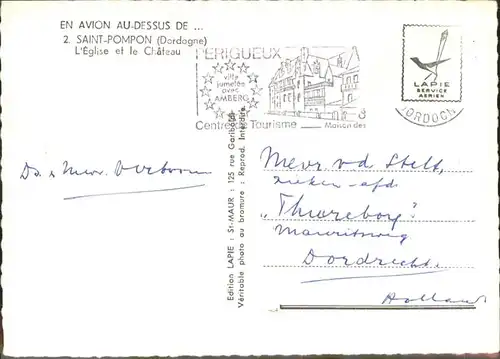 EN AVION AU-DESSUS DE ...
2. SAINT-POMPON (Dordogne)
L'Église et le Château
PERIGUEUX
ville
jumelée
avec
AMBERG
Centre de Tourisme
Maison des
LAPIE
SERVICE
AERIEN
DORDOGNE
Edition LAPIE : St-MAUR : 125 rue Garibaldi
Véritable photo au bromure : Reprod. Interdite.
Mevr v d
zieken-afd
Dordrecht.
Holland